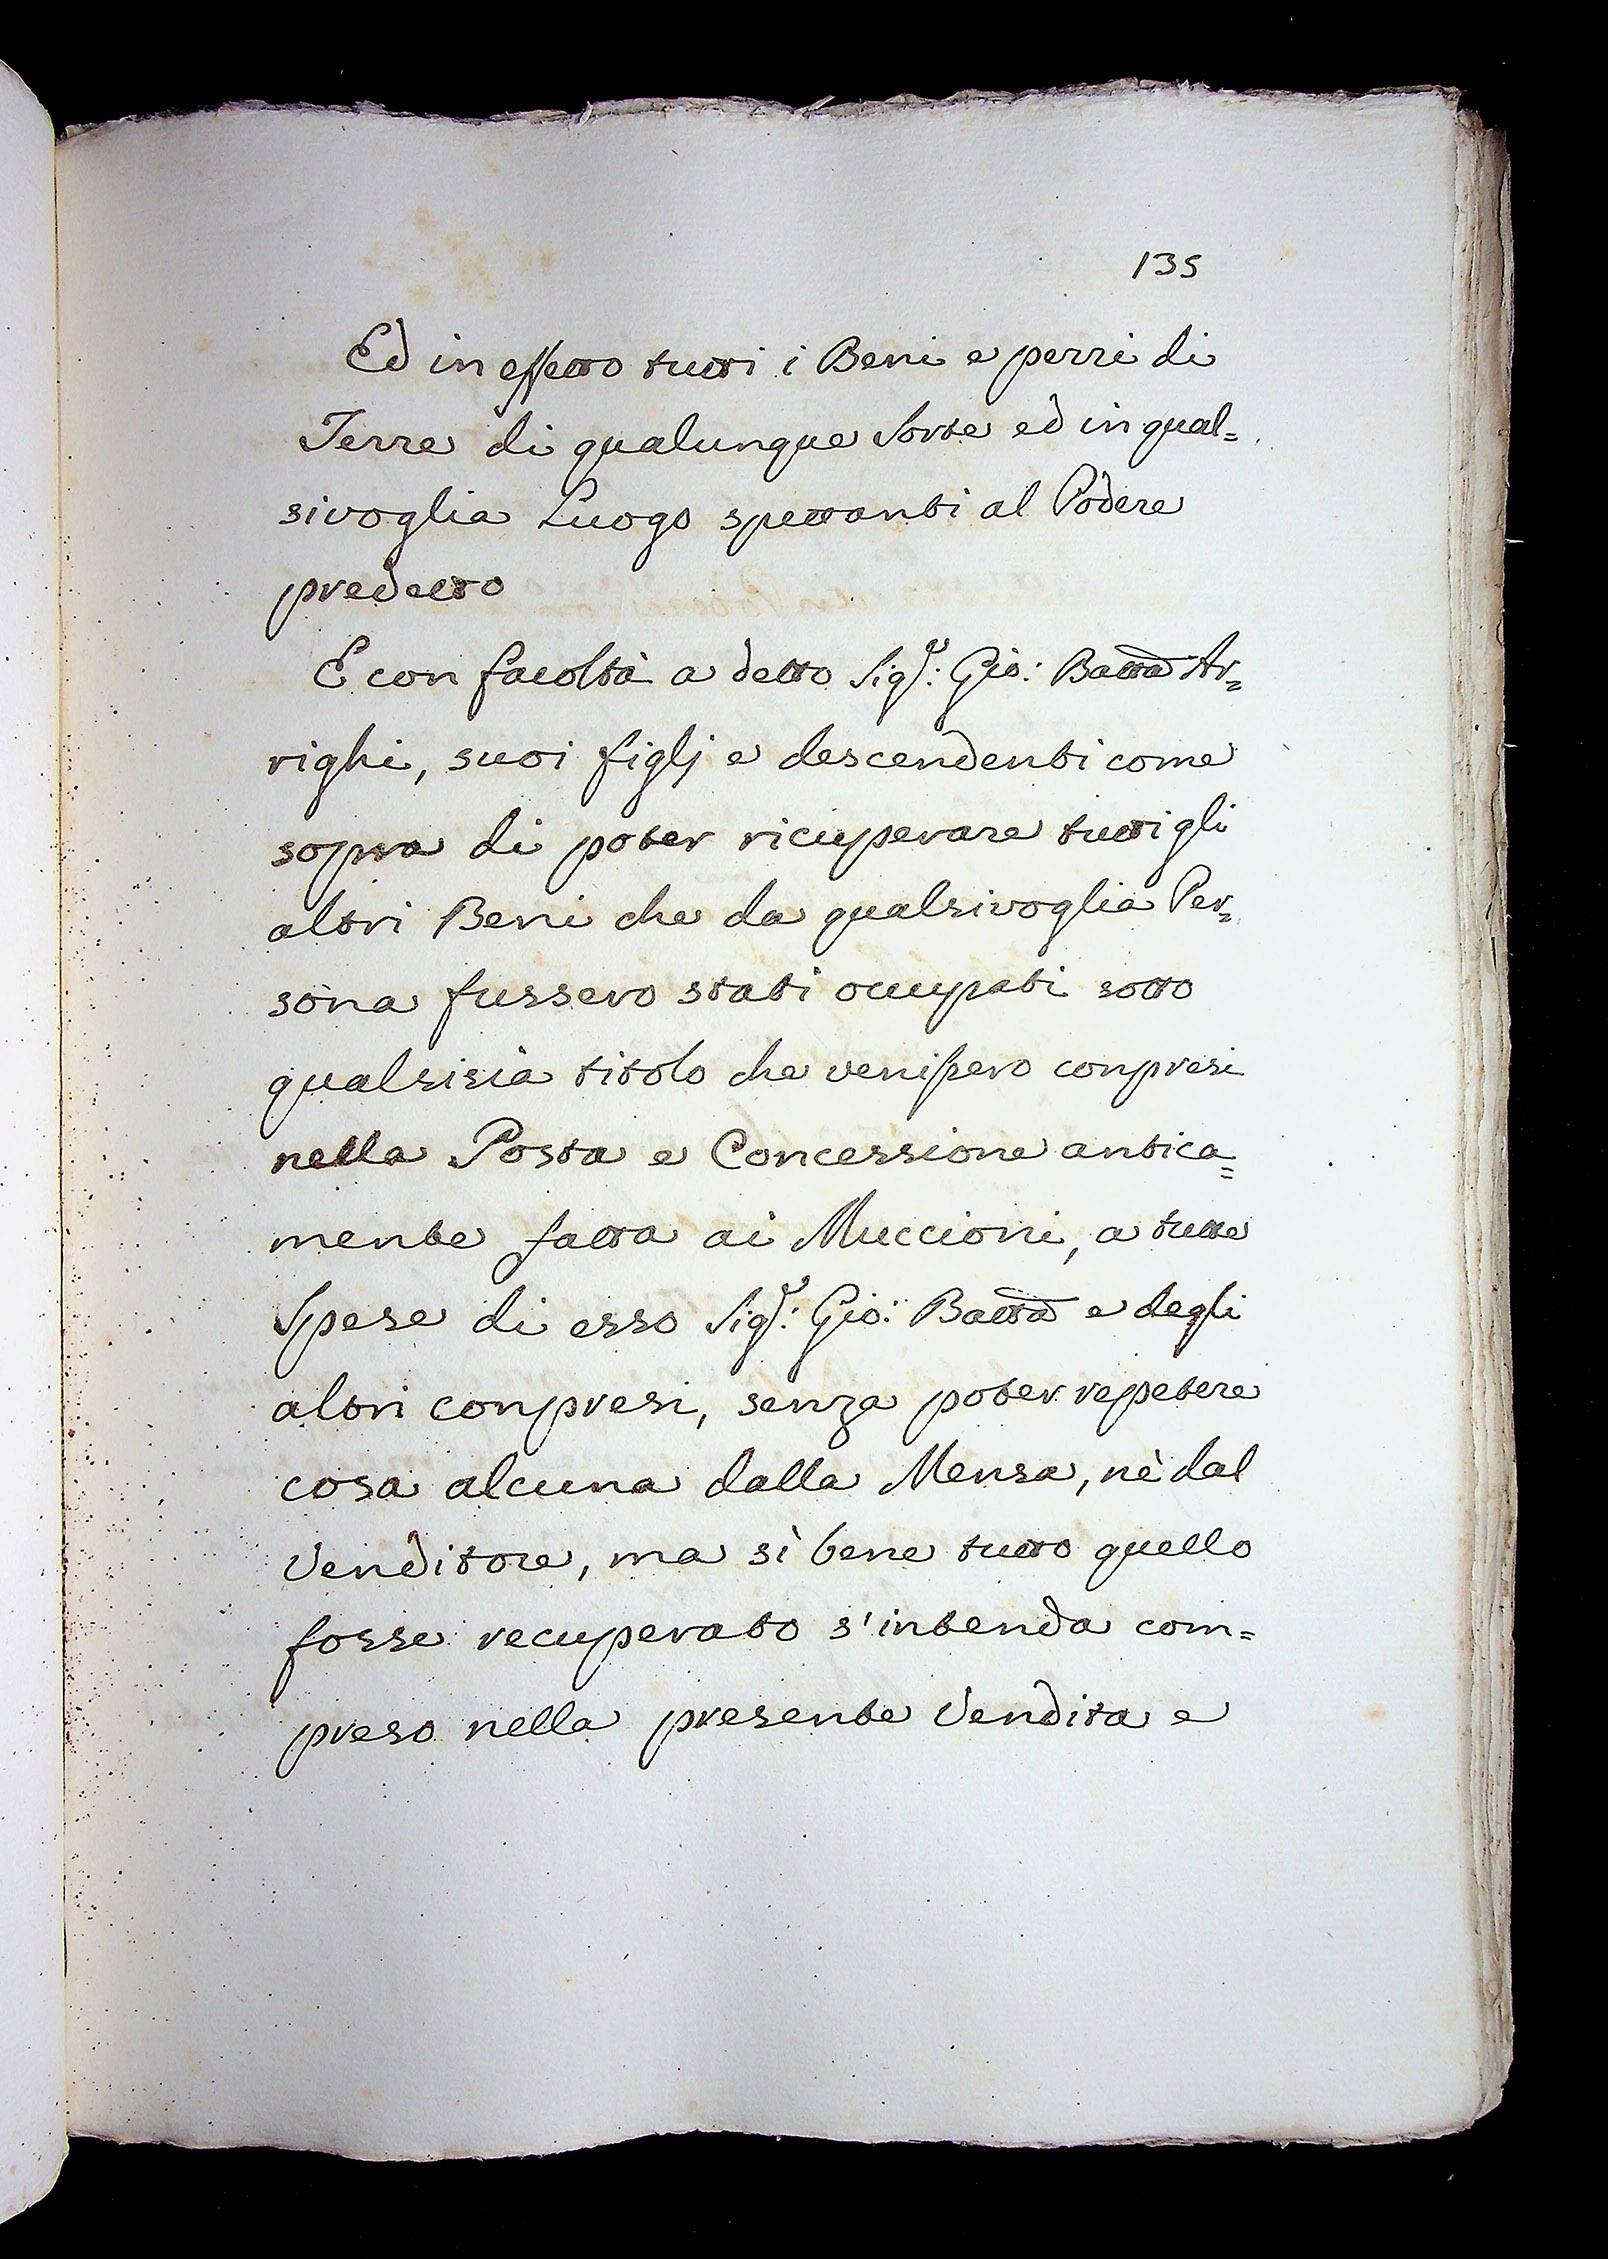 135
Ed in effetto tutti i Beni e pezzi di
Terre di qualunque Sorte ed in qual=
sivoglia Luogo spettanti al Podere
predetto
E con facoltà a detto Sigr: Gio: Batta Ar=
righi, suoi figlj e descendenti come
sopra di poter ricuperare tutti gli
altri Beni che da qualsivoglia Per=
sona fussero stati occupati sotto
qualsisia titolo che venissero conpresi
nella Posta e Concessione antica=
mente fatta ai Muccioni, a tutte
Spese di esso Sigr: Gio: Batta e degli
altri conpresi, senza poter repetere
cosa alcuna dalla Mensa, nè dal
Venditore, ma sì bene tutto quello
fosse recuperato s'intenda com=
preso nella presente Vendita e